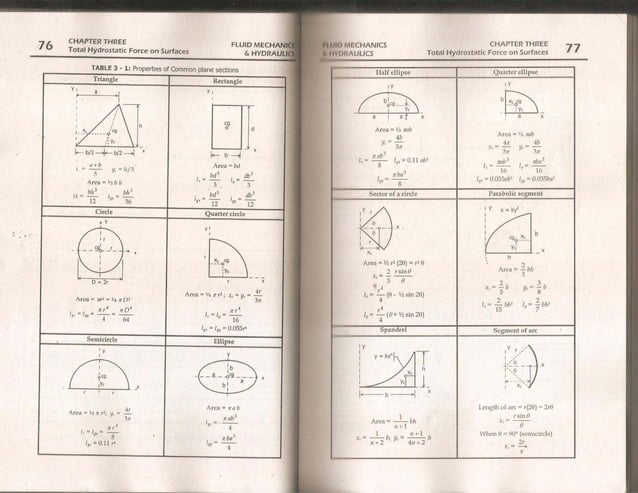 76
CHAPTER THREE
Total Hydrostatic Force on Surfaces
FLUID MECHANICS
& HYDRAULICS
TABLE 3 - 1: Properties of Common plane sections
Triangle
Rectangle
Y
a
h
xc
cg
yc
b/2
b/2
x
Y
cg
d
b
x
xc = (a + b)/3   yc = h/3
Area = ½ b h
Ix = bh³/12   Igx = bh³/36
Area = bd
Ix = bd³/3   Iy = db³/3
Igx = bd³/12   Igy = db³/12
Circle
Quarter circle
Y
r
cg
x
D = 2r
Y
r
xc cg
yc
r
x
Area = πr² = ¼ π D²
Igx = Igy = πr⁴/4 = πD⁴/64
Area = ¼ π r² ; xc = yc = 4r/3π
Ix = Iy = πr⁴/16
Igx = Igy = 0.055r⁴
Semicircle
Ellipse
Y
cg
yc
r
r
x
y
b
a
cg
a
x
b
Area = ½ π r²; yc = 4r/3π
Ix = Iy = πr⁴/8
Igx = 0.11 r⁴
Area = π a b
Igx = πab³/4
Igy = πba³/4
FLUID MECHANICS
& HYDRAULICS
CHAPTER THREE
Total Hydrostatic Force on Surfaces
77
Half ellipse
Quarter ellipse
Y
b
cg
yc
a
a
x
Y
b
xc cg
yc
a
x
Area = ½ πab
yc = 4b/3π
Ix = πab³/8   Igx = 0.11 ab³
Igy = πba³/8
Area = ¼ πab
xc = 4a/3π   yc = 4b/3π
Ix = πab³/16   Iy = πba³/16
Igx = 0.055ab³   Igy = 0.055ba³
Sector of a circle
Parabolic segment
Y
r
θ
θ
x
r
xc
Y
x = ky²
cg xc
yc
b
h
x
Area = ½ r² (2θ) = r² θ
xc = 2/3 r sin θ/θ
Ix = r⁴/4 (θ - ½ sin 2θ)
Iy = r⁴/4 (θ + ½ sin 2θ)
Area = 2/3 bh
xc = 2/5 h   yc = 3/8 b
Ix = 2/15 bh³   Iy = 2/7 hb³
Spandrel
Segment of arc
Y
y = kxⁿ
xc
yc
h
b
x
Y
r
θ
θ
r
xc
x
Area = 1/(n+1) bh
xc = 1/(n+2) b; yc = (n+1)/(4n+2) h
Length of arc = r(2θ) = 2rθ
xc = r sin θ/θ
When θ = 90° (semicircle)
xc = 2r/π